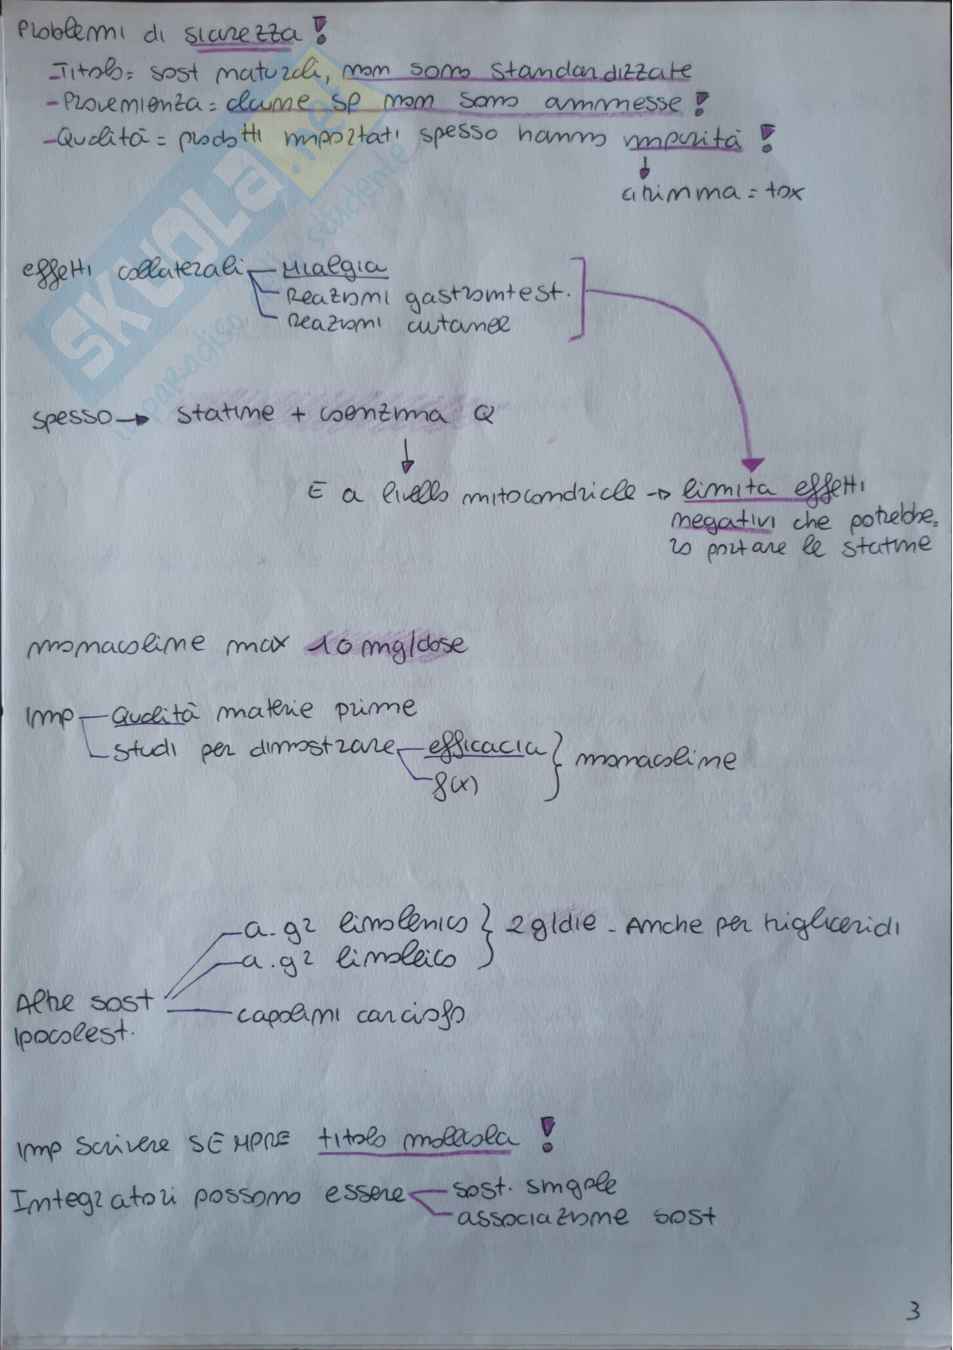 Problemi di sicurezza!
-Titolo= sost naturali, non sono standardizzate
-Provenienza= alcune sp non sono ammesse!
-Qualità= prodotti importati spesso hanno impurità!
↓
= tox
effetti collaterali - Mialgia
- Reazioni gastrointest.
- Reazioni cutanee
spesso → statine + coenzima Q
↓
È a livello mitocondriale → limita effetti
negativi che potrebbe,
ro portare le statine
monacoline max 10 mg/dose
Imp - Qualità materie prime
- studi per dimostrare - efficacia } monacoline
- f(x)
- a. gr linolenico } 2g/die - Anche per trigliceridi
- a. gr linoleico
Altre sost
- capolini carciofo
Ipocolest.
Imp scrivere SEMPRE titolo molecola!
Integratori possono essere - sost. singole
- associazione sost
3
SKUOLA.net
paradiso
studente